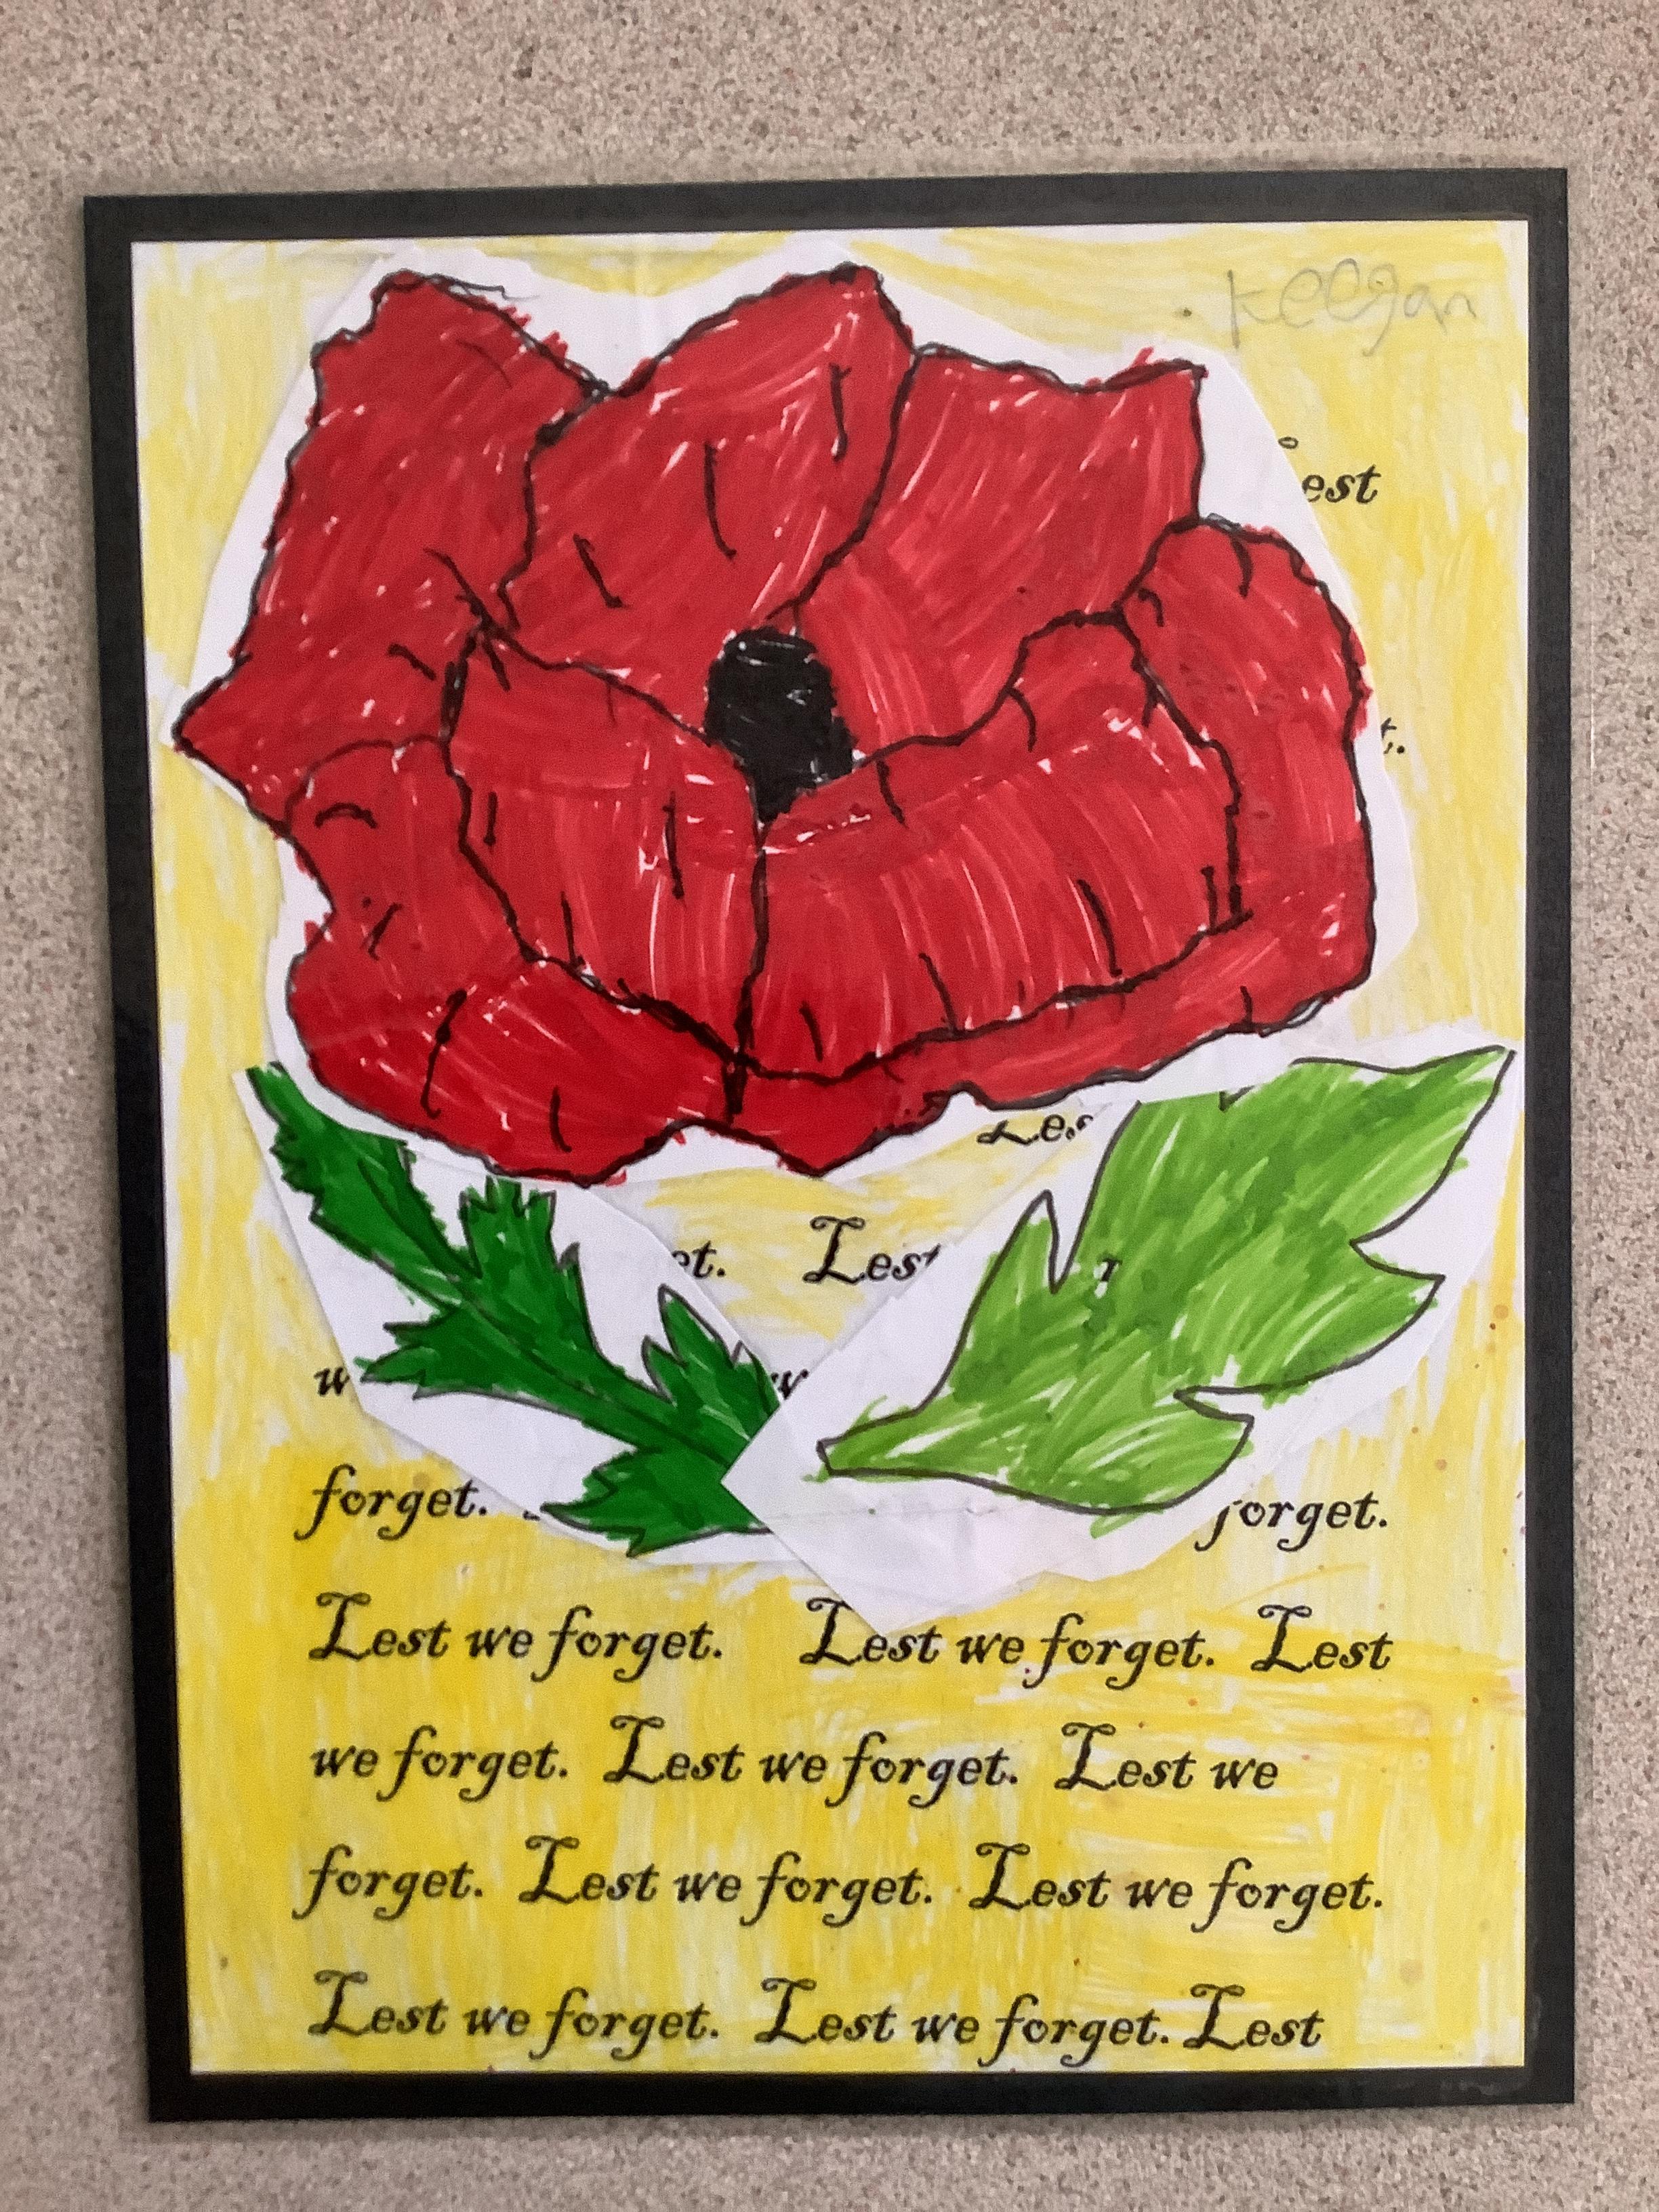 Keegan
est
t.
Les
et. Lest
w w
forget. forget.
Lest we forget. Lest we forget. Lest
we forget. Lest we forget. Lest we
forget. Lest we forget. Lest we forget.
Lest we forget. Lest we forget. Lest